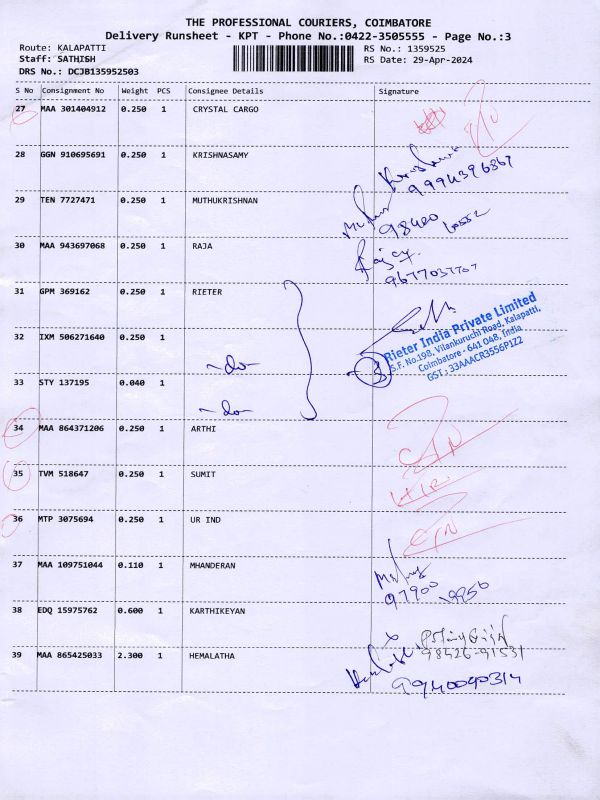 THE PROFESSIONAL COURIERS, COIMBATORE
Delivery Runsheet - KPT - Phone No.:0422-3505555 - Page No.:3
Route: KALAPATTI RS No.: 1359525
Staff: SATHISH RS Date: 29-Apr-2024
DRS No.: DCJB135952503
S No Consignment No Weight PCS Consignee Details Signature
27 MAA 301404912 0.250 1 CRYSTAL CARGO
28 GGN 910695691 0.250 1 KRISHNASAMY
9994396867
29 TEN 7727471 0.250 1 MUTHUKRISHNAN
98420
30 MAA 943697068 0.250 1 RAJA
9677037767
31 GPM 369162 0.250 1 RIETER
32 IXM 506271640 0.250 1 ~do~
33 STY 137195 0.040 1 ~do~
3
Rieter India Private Limited
S.F. No.198, Vilankuruchi Road, Kalapatti,
Coimbatore - 641 048, India
GST : 33AAACR3556P1Z2
34 MAA 864371206 0.250 1 ARTHI
35 TVM 518647 0.250 1 SUMIT
36 MTP 3075694 0.250 1 UR IND
37 MAA 109751044 0.110 1 MHANDERAN
97900
38 EDQ 15975762 0.600 1 KARTHIKEYAN
98426-91531
39 MAA 865425033 2.300 1 HEMALATHA
9940040314